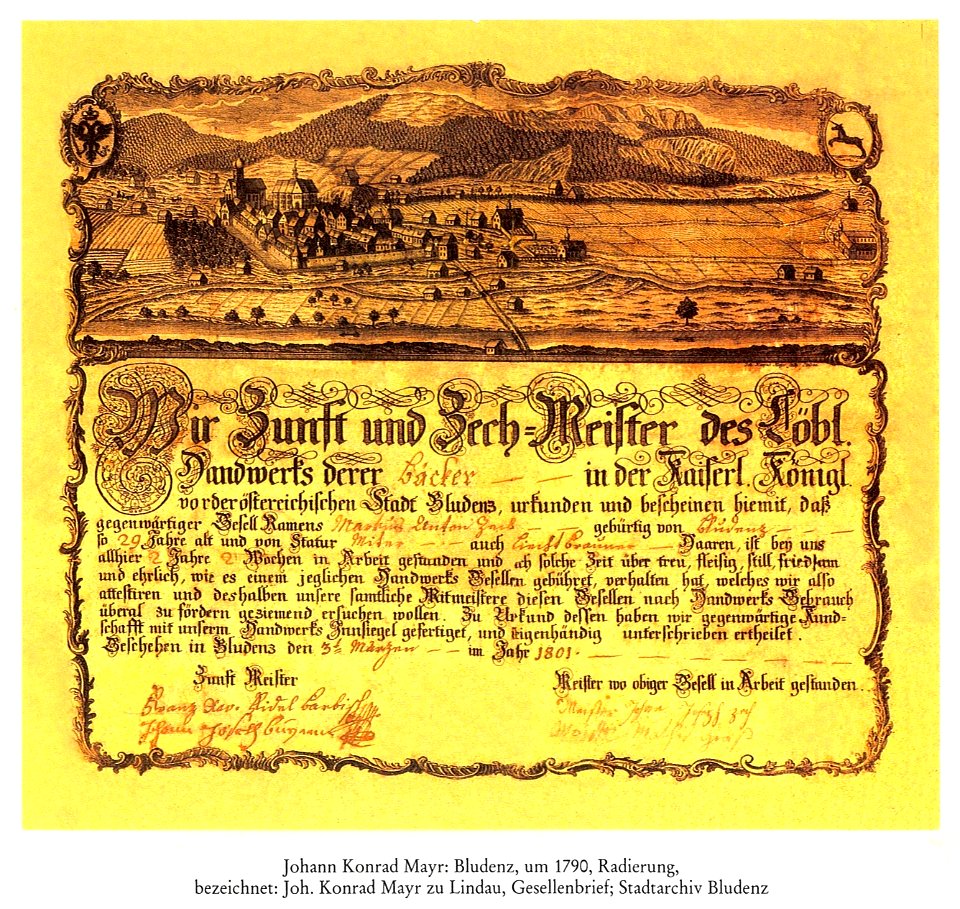 Wir Zunft und Zech=Meister des Löbl.
Handwerks derer Bäcker in der Kaiserl. Königl.
vorderöstereichischen Stadt Bludenz, urkunden und bescheinen hiemit, daß
gegenwärtiger Gesell Namens Anton gebürtig von Bludenz
so 29 Jahre alt und von Statur Miter auch Liechtbrauner Haaren, ist bey uns
allhier 2 Jahre 2 Wochen in Arbeit gestanden und ch solche Zeit über treu, fleisig, still, friedsam
und ehrlich, wie es einem jeglichen Handwerks Gesellen gebühret, verhalten hat, welches wir also
attestiren und deshalben unsere samtliche Mitmeistere diesen Gesellen nach Handwerks Gebrauch
überal zu fördern geziemend ersuchen wollen. Zu Urkund dessen haben wir gegenwärtige Kund-
schafft mit unserm Handwerks Innsiegel gefertiget, und Eigenhändig unterschrieben ertheilet.
Geschehen in Bludenz den 3ᵗ Märzen im Jahr 1801.
Zunft Meister
Meister wo obiger Gesell in Arbeit gestanden.
Franz Xav. Fidel
Johann Joseph
Meister
Johann Konrad Mayr: Bludenz, um 1790, Radierung,
bezeichnet: Joh. Konrad Mayr zu Lindau, Gesellenbrief; Stadtarchiv Bludenz